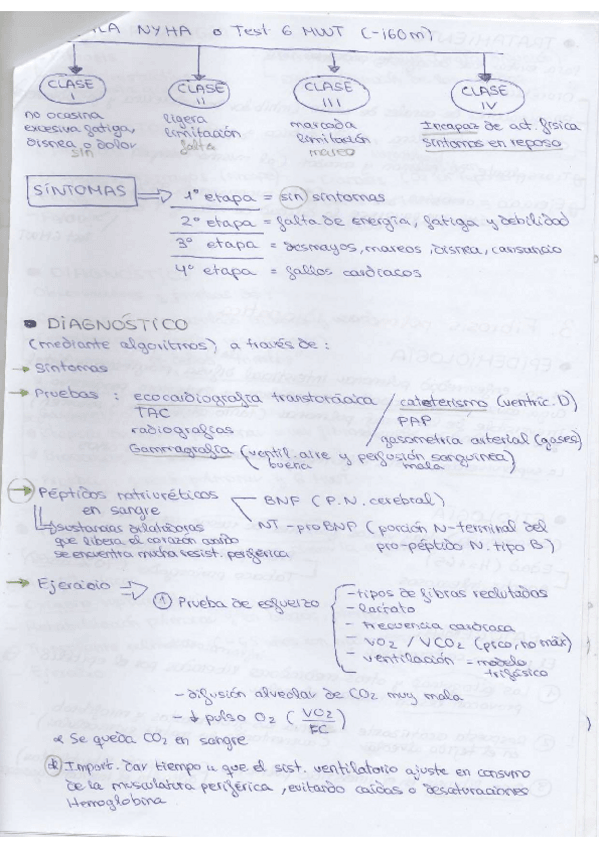 NYHA o Test 6 MWT (-160m)
CLASE I
no ocasina
excesiva fatiga,
disnea o dolor
sin
CLASE II
ligera
limitación
falta
CLASE III
marcada
limitación
mareo
CLASE IV
Incapaz de act. física
Síntomas en reposo
SÍNTOMAS
1º etapa = sin síntomas
2º etapa = falta de energía, fatiga y debilidad
3º etapa = desmayos, mareos, disnea, cansancio
4º etapa = fallos cardíacos
• DIAGNÓSTICO
(mediante algoritmos) a través de:
→ Síntomas
→ Pruebas : ecocardiografía transtorácica
TAC
radiografías
Gammagrafía (ventil. aire y perfusión sanguínea)
buena mala
cateterismo (ventríc. D)
PAP
gasometría arterial (gases)
→ Péptidos natriuréticos
en sangre
sustancias dilatadoras
que libera el corazón cuando
se encuentra mucha resist. periférica
BNP (P.N. cerebral)
NT-proBNP (porción N-terminal del
pro-péptido N. tipo B)
→ Ejercicio ⇒
① Prueba de esfuerzo
- tipos de fibras reclutadas
- lactato
- frecuencia cardíaca
- VO2 / VCO2 (pico, no máx)
- ventilación - modelo
trifásico
- difusión alveolar de CO2 muy mala
- ↓ pulso O2 (VO2/FC)
Se queda CO2 en sangre
Import. dar tiempo a que el sist. ventilatorio ajuste en consumo
de la musculatura periférica, evitando caídas o desaturaciones
Hemoglobina